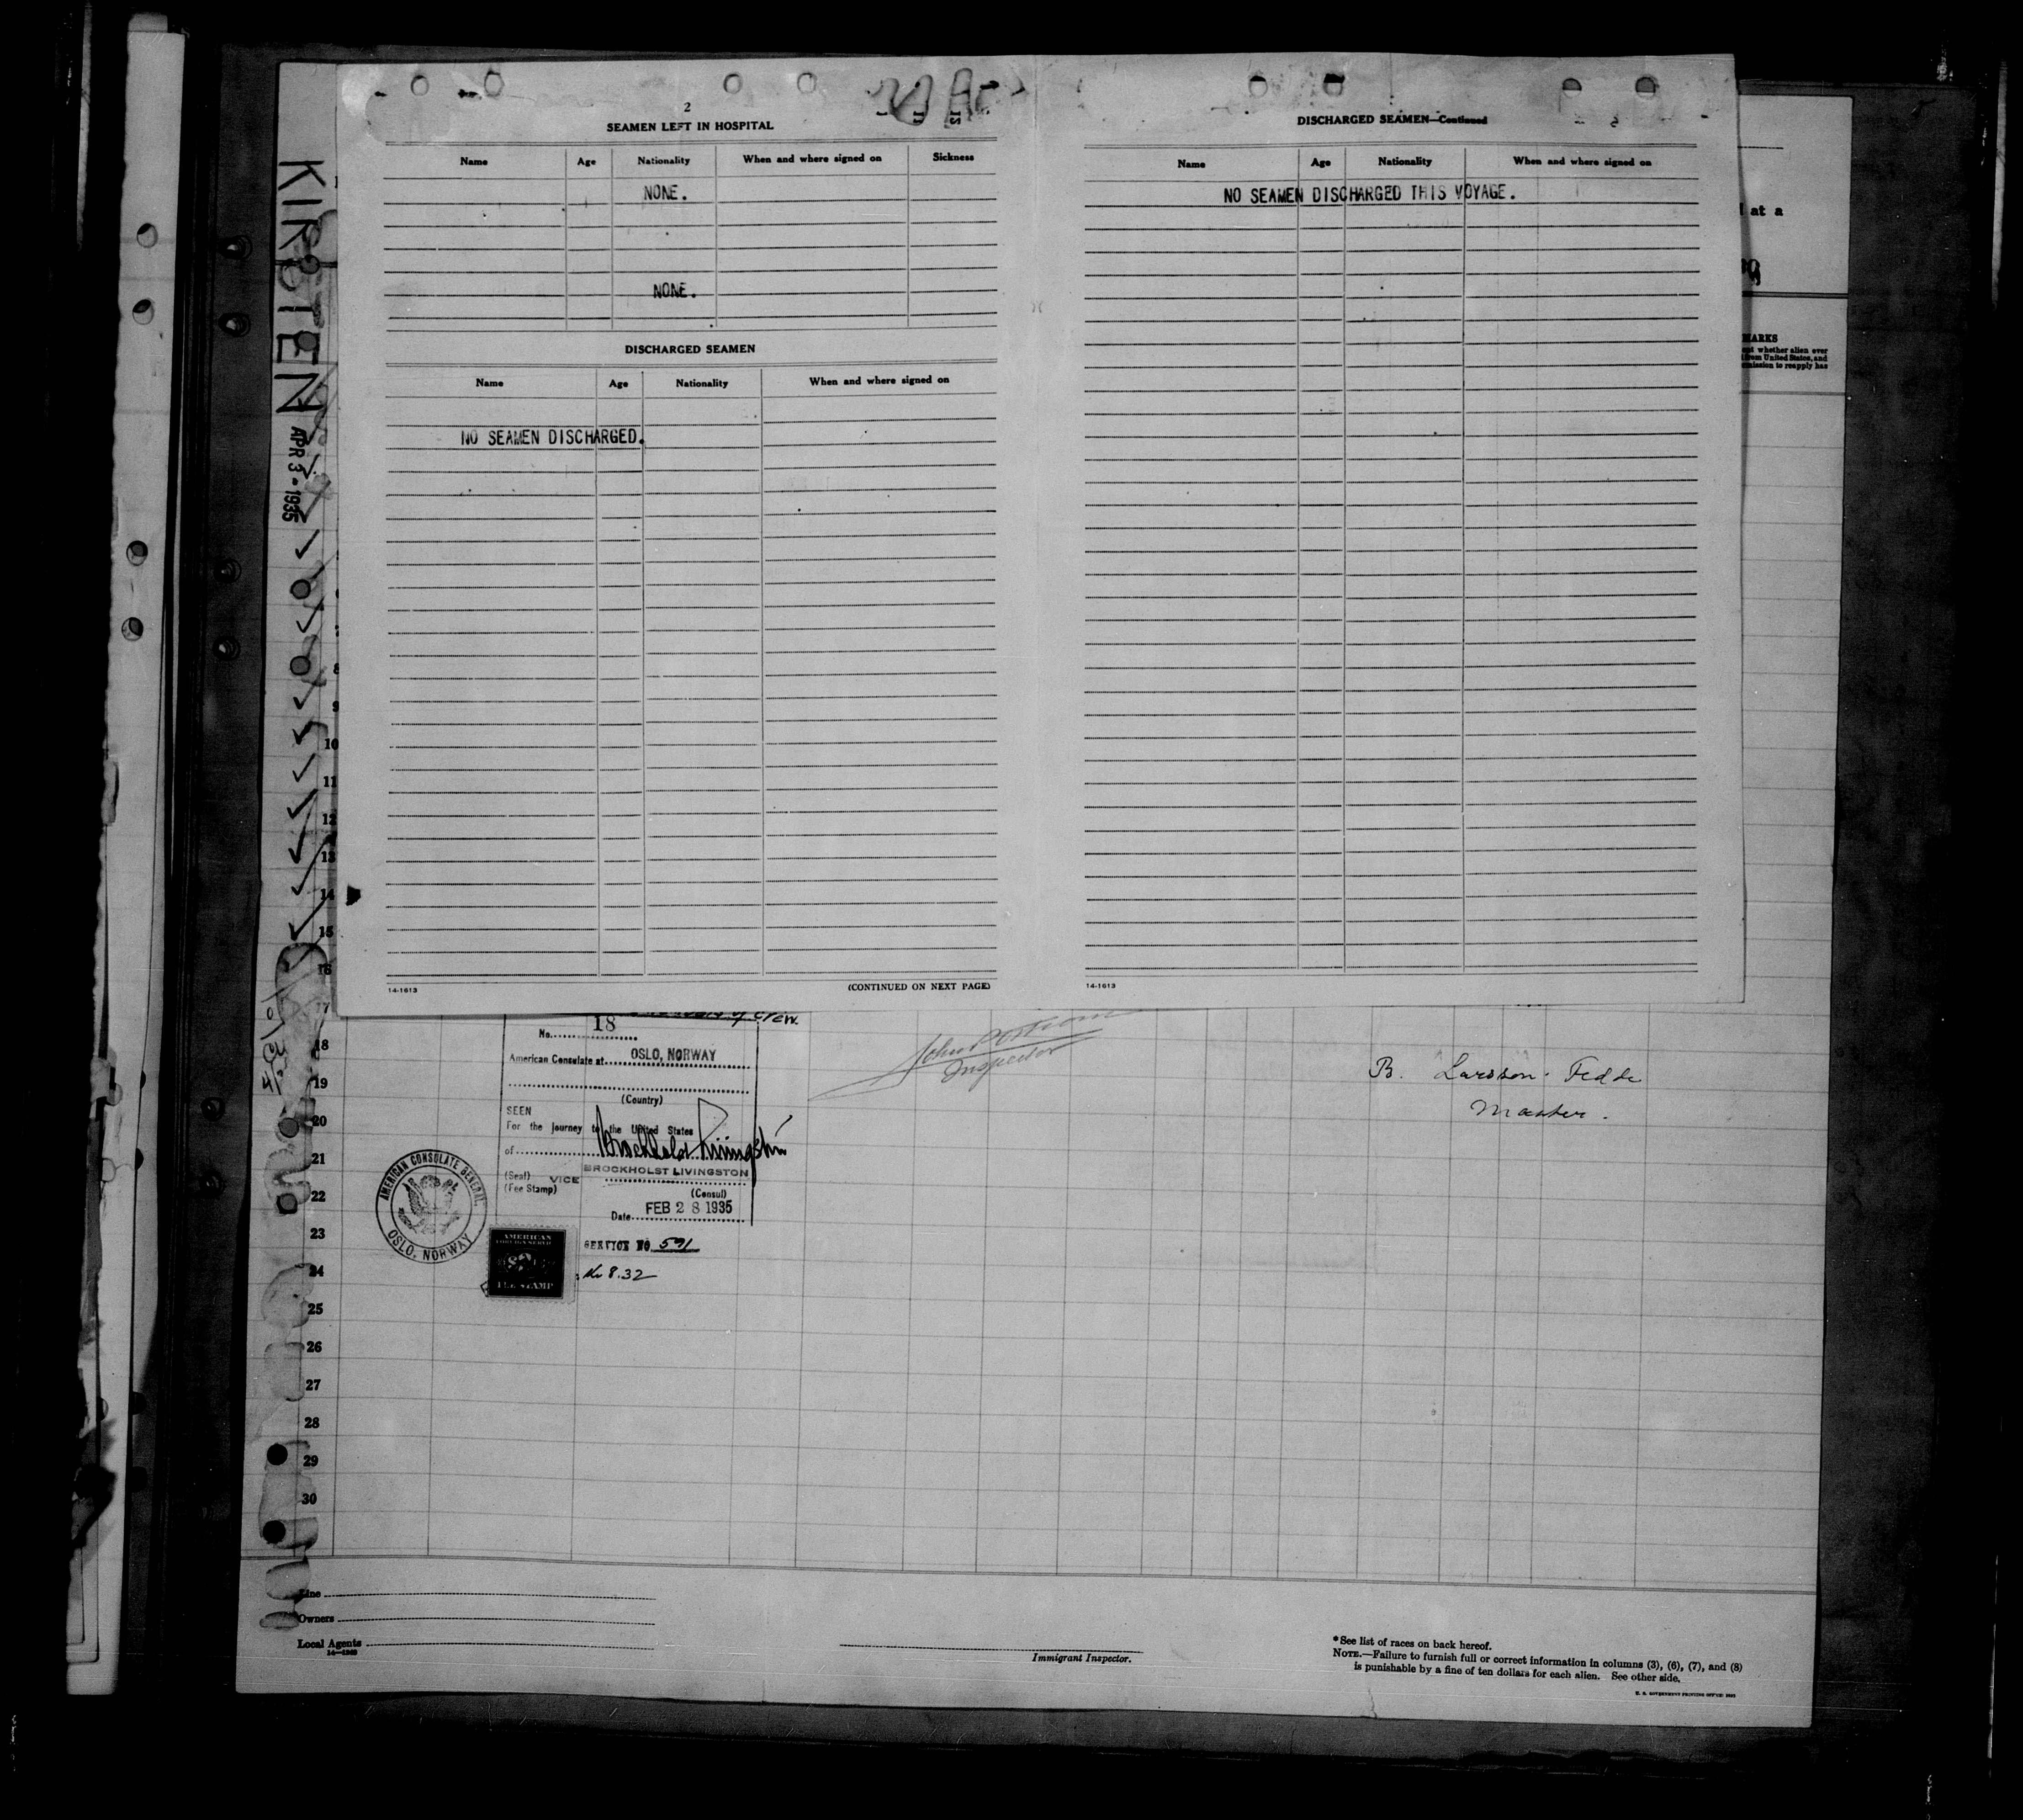 2
SEAMEN LEFT IN HOSPITAL
Name Age Nationality When and where signed on Sickness
NONE.
NONE.
DISCHARGED SEAMEN
Name Age Nationality When and where signed on
NO SEAMEN DISCHARGED.
14-1613 (CONTINUED ON NEXT PAGE)
DISCHARGED SEAMEN—Continued
Name Age Nationality When and where signed on
NO SEAMEN DISCHARGED THIS VOYAGE.
14-1613
at a
MARKS
whether alien ever
from United States, and
to reapply has
KIRSTEN
APR 3 - 1935
8
9
10
11
12
13
14
15
16
17
18
19
20
21
22
23
24
25
26
27
28
29
30
of Crew.
No. 18
American Consulate at OSLO, NORWAY
(Country)
SEEN
For the journey to the United States
of
Brockholst Livingston
BROCKHOLST LIVINGSTON
(Seal) VICE
(Fee Stamp)
(Consul)
Date FEB 28 1935
AMERICAN CONSULATE GENERAL
OSLO, NORWAY
AMERICAN
FEE STAMP
SERVICE NO 591
Kr 8.32
Inspector
B. Larsson-Fedde
Master.
Line
Owners
Local Agents
Immigrant Inspector.
*See list of races on back hereof.
NOTE.—Failure to furnish full or correct information in columns (3), (6), (7), and (8)
is punishable by a fine of ten dollars for each alien. See other side.
U. S. GOVERNMENT PRINTING OFFICE